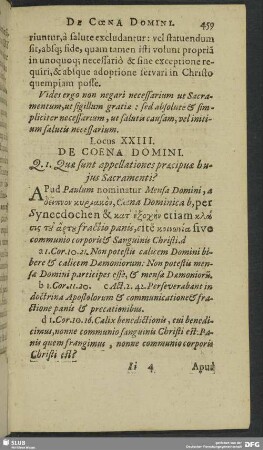 DE COENA DOMINI. 459
riuntur, à salute excludantur: vel statuendum
sit, absq; fide, quam tamen isti volunt propriâ
in unoquoq; necessariò & sine exceptione re-
quiri, & absque adoptione servari in Christo
quempiam posse.
Videt ergo non negari necessarium ut Sacra-
mentum, ut sigillum gratiæ: sed absolutè & sim-
pliciter necessarium, ut salutis causam, vel initi-
um salutis necessarium.
Locus XXIII.
DE COENA DOMINI.
Q. 1. Quæ sunt appellationes præcipuæ hu-
jus Sacramenti?
APud Paulum nominatur Mensa Domini, a
δεῖπνον κυριακὸν, Cœna Dominica b, per
Synecdochen & κατ' ἐξοχὴν etiam κλά-
σις τοῦ ἄρτου fractio panis, c itē κοινωνία sive
communio corporis & Sanguinis Christi. d
a 1. Cor. 10. 21. Non potestis calicem Domini bi-
bere & calicem Dæmoniorum: Non potestis men-
sæ Domini participes esse, & mensæ Dæmoniorū,
b 1. Cor. 11. 20. c Act. 2. 42. Perseverabant in
doctrina Apostolorum & communicatione & fra-
ctione panis & precationibus.
d 1. Cor. 10. 16. Calix benedictionis, cui benedi-
cimus, nonne communio sanguinis Christi est: Pa-
nis quem frangimus, nonne communio corporis
Christi est?
Ii 4 Apud
SLUB